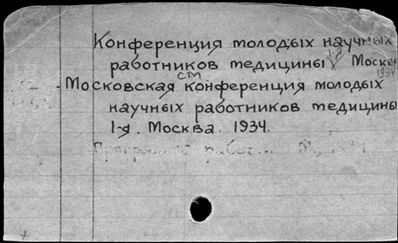 Конференция молодых научных
работников медицины 1-я Москва
1934
см
Московская конференция молодых
научных работников медицины
1-я. Москва. 1934.